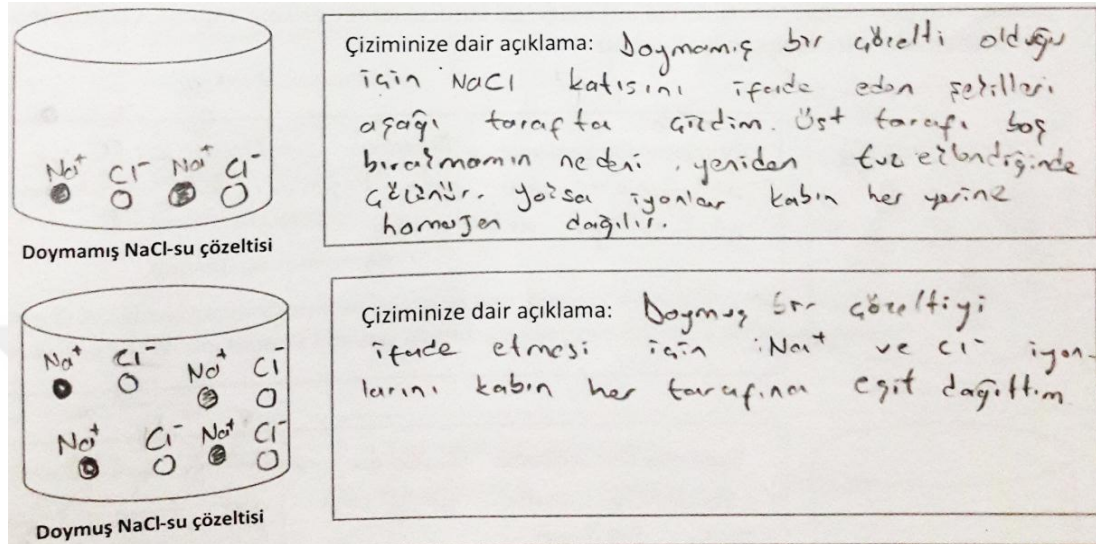 Na⁺ Cl⁻ Na⁺ Cl⁻
Doymamış NaCl-su çözeltisi
Çiziminize dair açıklama: Doymamış bir çözelti olduğu
için NaCl katısını ifade eden şekilleri
aşağı tarafta çizdim. Üst tarafı boş
bırakmamın nedeni, yeniden tuz eklendiğinde
çözünür. Yoksa iyonlar kabın her yerine
homojen dağılır.
Na⁺ Cl⁻ Na⁺ Cl
Na⁺ Cl⁻ Na⁺ Cl⁻
Doymuş NaCl-su çözeltisi
Çiziminize dair açıklama: Doymuş bir çözeltiyi
ifade etmesi için Na⁺ ve Cl⁻ iyon-
larını kabın her tarafına eşit dağıttım